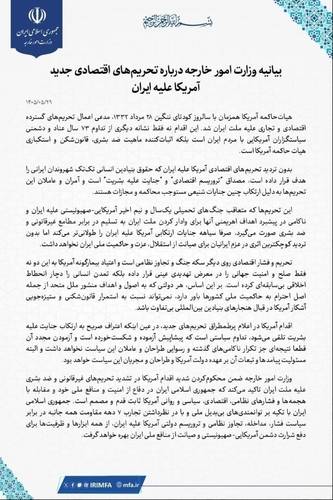 جمهوری اسلامی ایران
وزارت امور خارجه
بیانیه وزارت امور خارجه درباره تحریم‌های اقتصادی جدید
آمریکا علیه ایران
۱۴۰۵/۰۵/۲۹
هیات‌حاکمه آمریکا همزمان با سالروز کودتای ننگین ۲۸ مرداد ۱۳۳۲، مدعی اعمال تحریم‌های گسترده
اقتصادی و تجاری علیه ملت ایران شد. این اقدام نه فقط نشانه دیگری از تداوم ۷۳ سال عناد و دشمنی
سیاستگزاران آمریکایی با مردم ایران است بلکه اثبات‌کننده ماهیت ضد بشری، قانون‌شکن و استکباری
هیات حاکمه آمریکا است.
بدون تردید تحریم‌های اقتصادی آمریکا علیه ایران که حقوق بنیادین انسانی تک‌تک شهروندان ایرانی را
هدف قرار داده است، مصداق "تروریسم اقتصادی" و "جنایت علیه بشریت" است و آمران و عاملان این
تحریم‌ها به دلیل ارتکاب چنین جنایات شنیعی مستوجب محاکمه و مجازات هستند.
این تحریم‌ها که متعاقب جنگ‌های تحمیلی یک‌سال و نیم اخیر آمریکایی-صهیونیستی علیه ایران و
ناکامی در پیشبرد اهداف اهریمنی آنها برای وادار کردن ملت ایران به تسلیم در برابر مطامع غیرقانونی و
ضد بشری صورت می‌گیرد، صرفا سیاهه جنایات ارتکابی آمریکا علیه ایران را طولانی‌تر می‌کند اما بدون
تردید کوچکترین اثری در عزم ایرانیان برای صیانت از استقلال، عزت و حاکمیت ملی ایران نخواهد داشت.
تحریم و فشار اقتصادی روی دیگر سکه جنگ و تجاوز نظامی است و اعتیاد بیمارگونه آمریکا به این دو نه
فقط صلح و امنیت جهانی را در معرض تهدیدی عینی قرار داده بلکه تمدن انسانی را دچار انحطاط
اخلاقی بی‌سابقه‌ای کرده است. بر این اساس، هر دولتی که به اصول و اهداف منشور ملل متحد از جمله
اصل احترام به حاکمیت ملی کشورها باور دارد، نمی‌تواند نسبت به استمرار قانون‌شکنی و ستیزه‌جویی
آشکار آمریکا در قبال هنجارهای بنیادین بین‌المللی بی‌تفاوت باشد.
اقدام آمریکا در اعلام پرطمطراق تحریم‌های جدید، در عین اینکه اعتراف صریح به ارتکاب جنایت علیه
بشریت تلقی می‌شود، تداوم سیاستی است که پیشاپیش آزموده و شکست‌خورده است و آزمودن مجدد آن
قطعا نتیجه‌ای جز تکرار ناکامی‌های گذشته و رسوایی طراحان و عاملان این سیاست نخواهد داشت و البته
مسئولیت پیامدها و تبعات آن بر عهده دولت آمریکا و طراحان و مجریان این سیاست خواهد بود.
وزارت امور خارجه ضمن محکوم‌کردن شدید اقدام آمریکا در تشدید تحریم‌های غیرقانونی و ضد بشری
علیه ملت ایران تاکید می‌کند که جمهوری اسلامی ایران در دفاع از امنیت و منافع ملی خود و مقابله با
هجمه‌ها و فشارهای نظامی، اقتصادی، سیاسی و روانی آمریکا ثابت قدم و مصمم است. جمهوری اسلامی
ایران با تکیه بر توانمندی‌های بی‌بدیل ملی و با در نظرداشتن تجارب ۷ دهه مقاومت همه جانبه در برابر
سیاست فشار، مداخله، تجاوز نظامی و تروریسم دولتی آمریکا علیه ایران، از همه ابزارها و ظرفیت‌ها برای
دفع شرارت دشمن آمریکایی-صهیونیستی و صیانت از منافع ملی ایران بهره خواهد گرفت.
IRIMFA mfa.ir